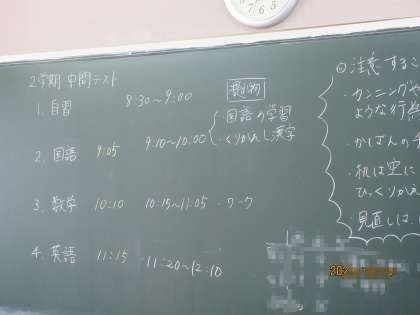 2学期 中間テスト
1. 自習 8:30~9:00
提出物
2. 国語 9:05 9:10~10:00
・国語の学習
・くりかえし漢字
3. 数学 10:10 10:15~11:05 ・ワーク
4. 英語 11:15 11:20~12:10
注意するこ
・カンニングや
ような行為
・かばんの
・机は空に
ひっくりかえ
・見直しは